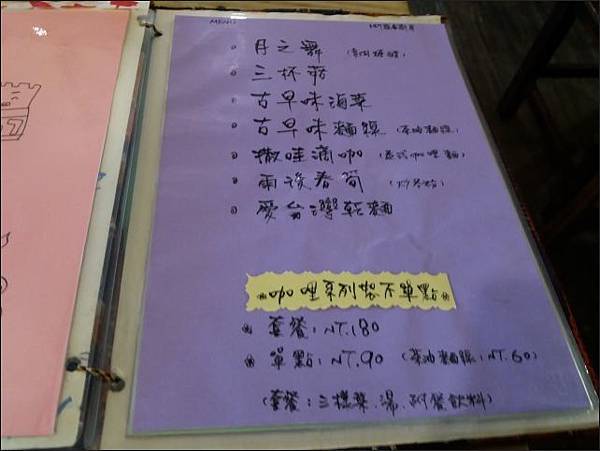 MENU
月之舞
三杯菇
古早味滷菜
古早味麵線 (茶油麵線)
撒哇滴咖 (泰式咖哩麵)
雨後春筍
愛台灣乾麵
咖哩系列製不單點
套餐:NT.180
單點:NT.90 (茶油麵線:NT.60)
(套餐:三樣菜.湯.附餐飲料)